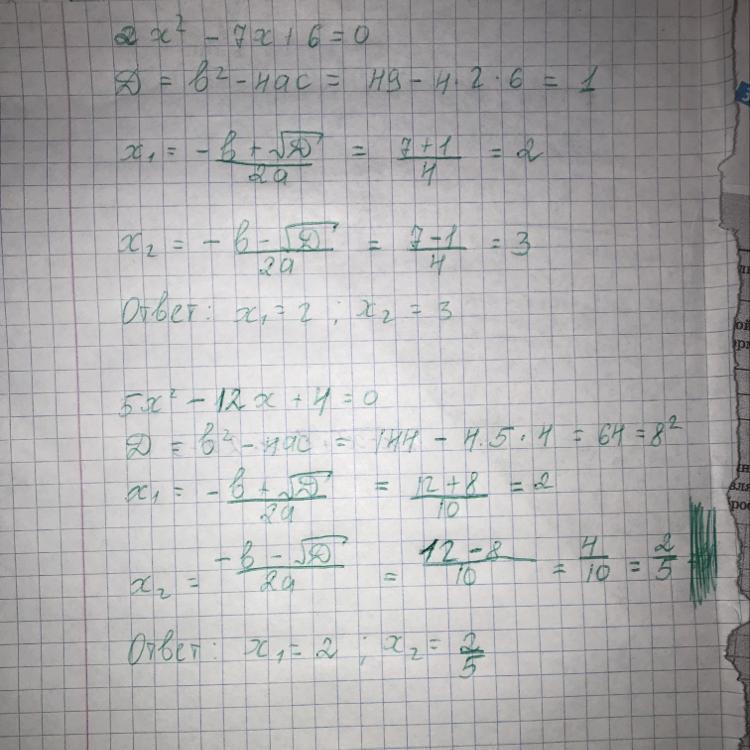 2x² - 7x + 6 = 0
D = b² - 4ac = 49 - 4·2·6 = 1
x₁ = -b + √D / 2a = 7+1 / 4 = 2
x₂ = -b - √D / 2a = 7-1 / 4 = 3
Ответ: x₁ = 2 ; x₂ = 3
5x² - 12x + 4 = 0
D = b² - 4ac = 144 - 4·5·4 = 64 = 8²
x₁ = -b + √D / 2a = 12+8 / 10 = 2
x₂ = -b - √D / 2a = 12-8 / 10 = 4/10 = 2/5
Ответ: x₁ = 2 ; x₂ = 2/5